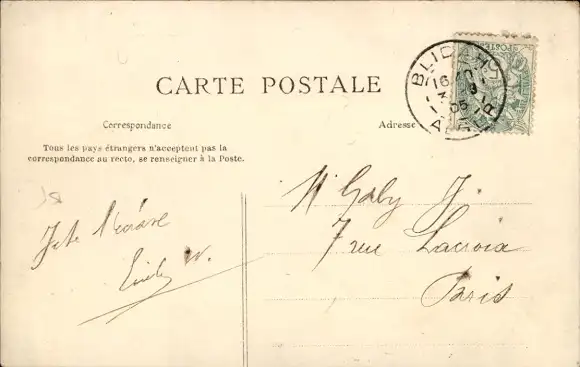 CARTE POSTALE
BLIDAH
16
3
05
ALGER
Correspondance
Adresse
Tous les pays étrangers n'acceptent pas la
correspondance au recto, se renseigner à la Poste.
Je te
Emily W.
Gaby J.
7 rue Lacroix
Paris